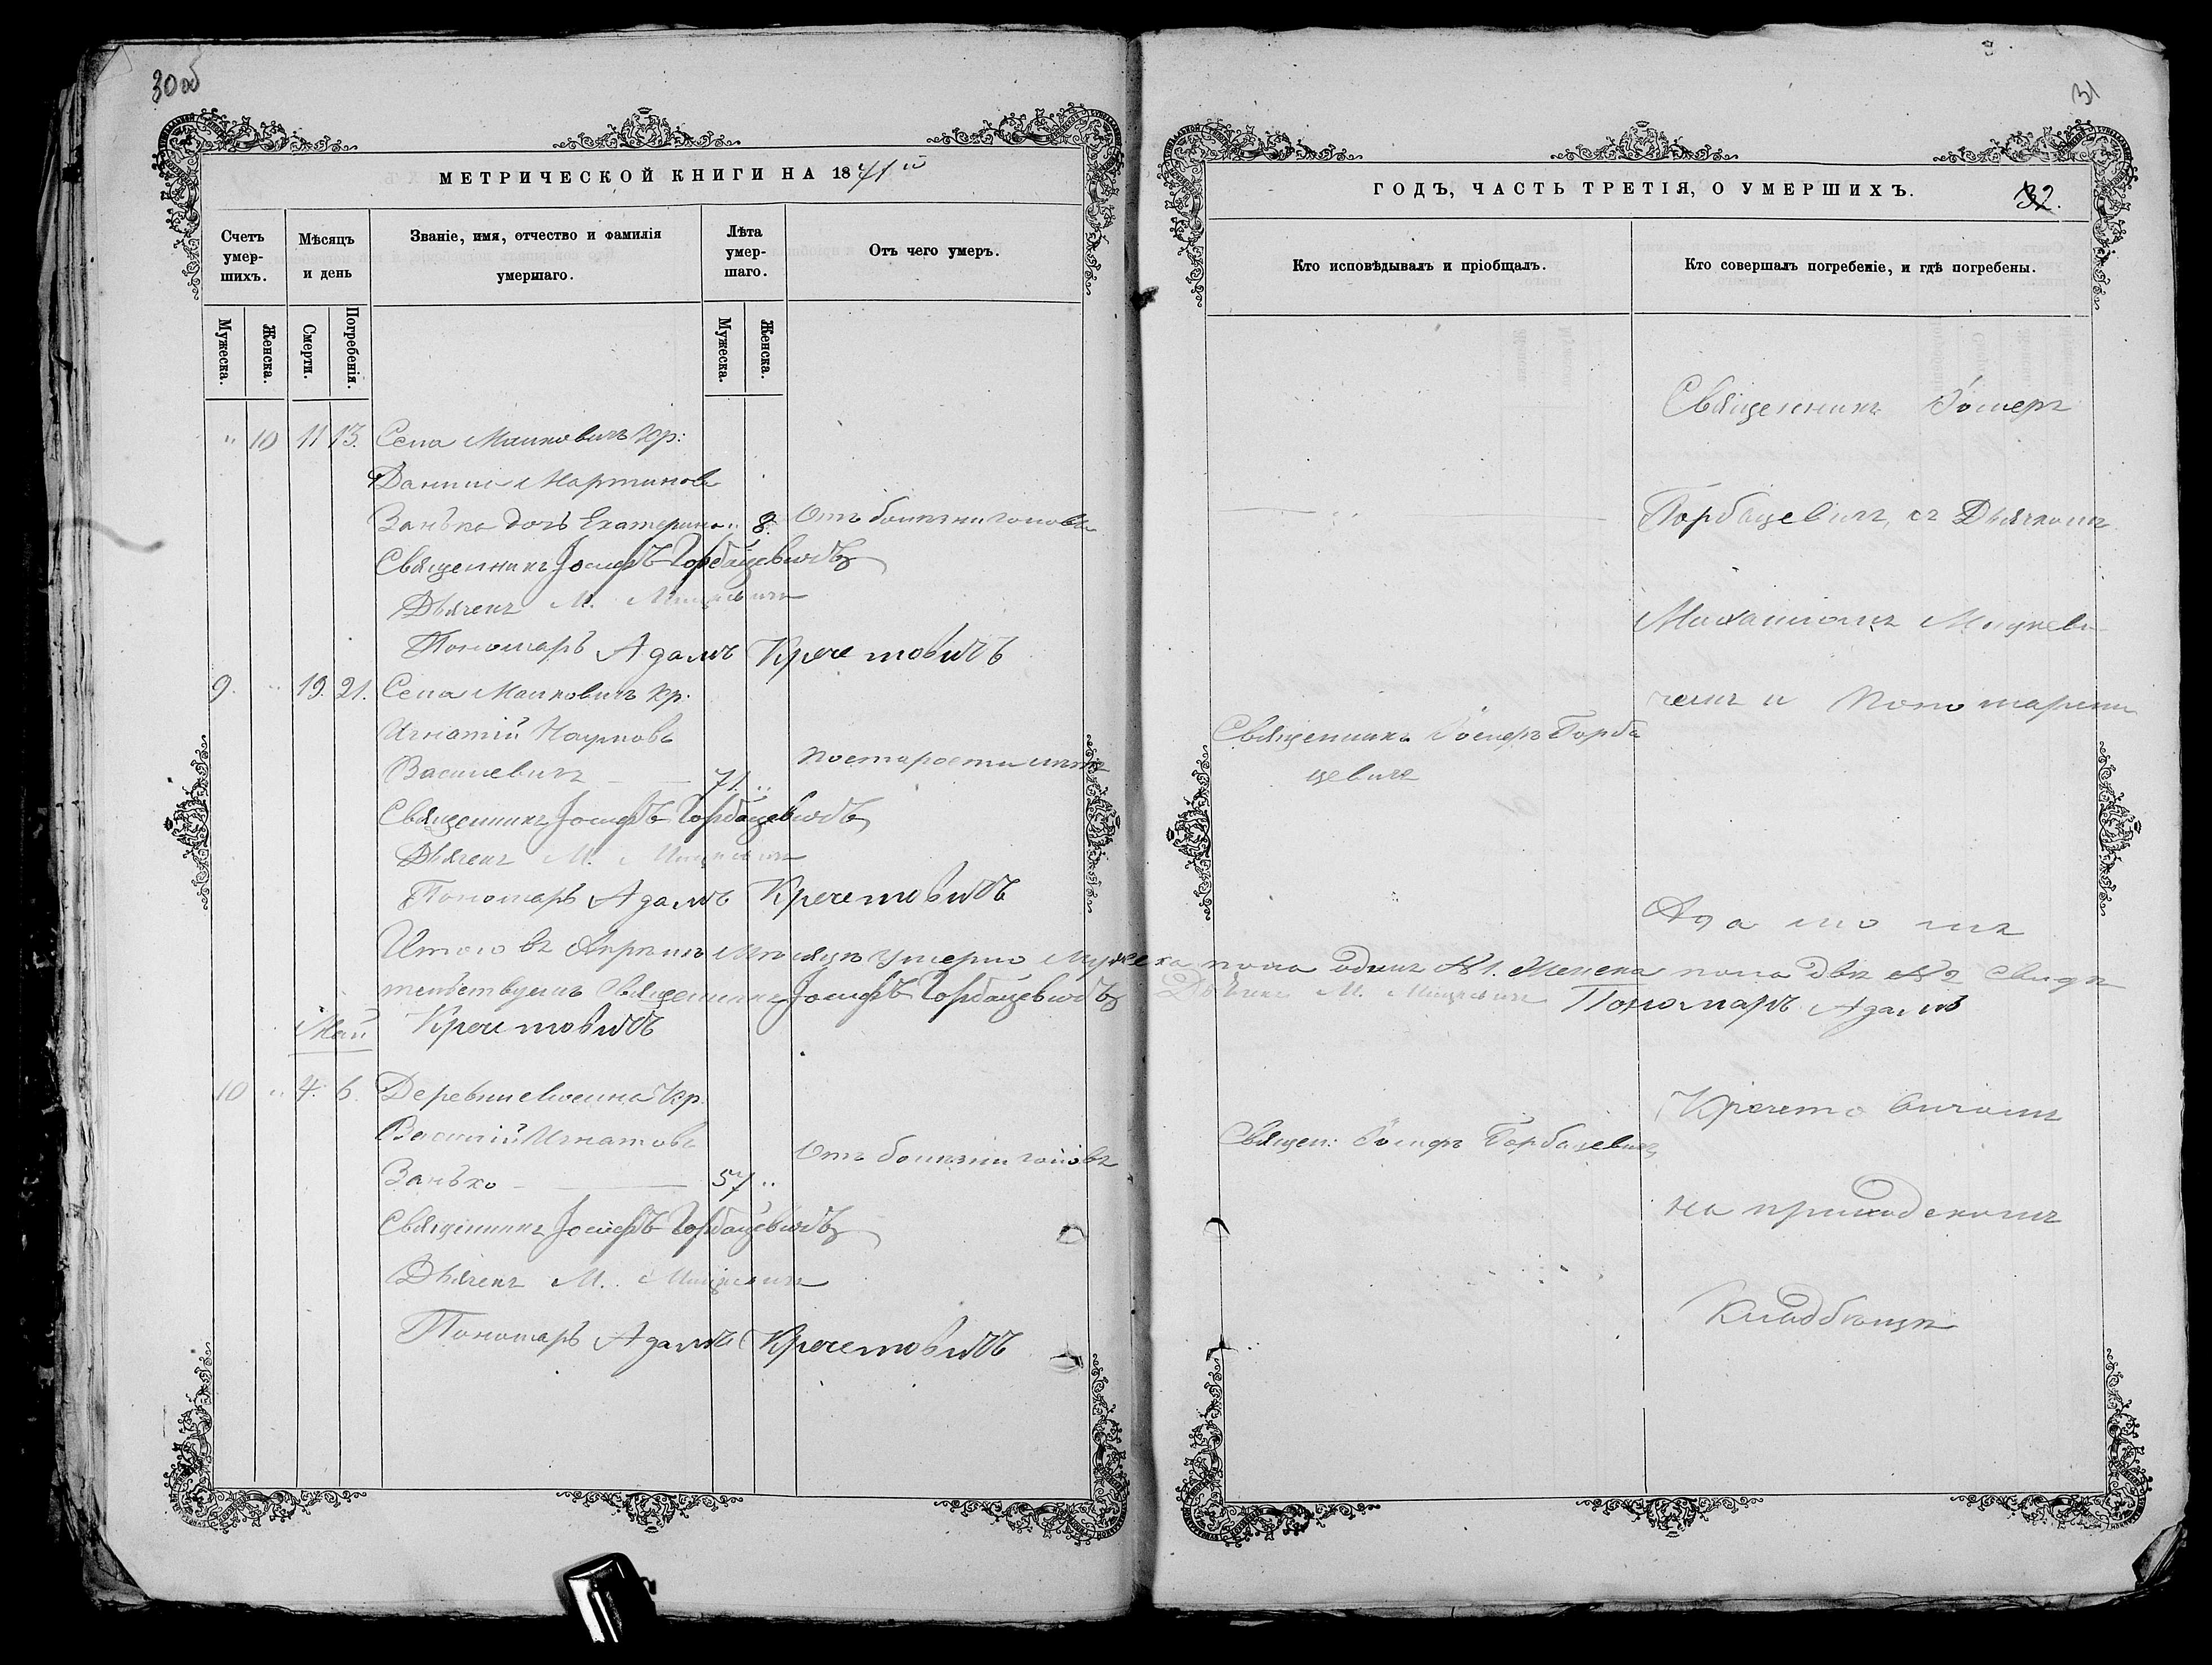 30об
МЕТРИЧЕСКОЙ КНИГИ НА 1871й
Счетъ умер-шихъ.
Мѣсяцъ и день
Званіе, имя, отчество и фамилія умершаго.
Лѣта умер-шаго.
Отъ чего умеръ.
Мужеска.
Женска.
Смерти.
Погребенія.
Мужеска.
Женска.
" 10 11 13. Села Малковичъ Кр:
Даниила Мартинова
Занъка дочь Екатерина " 8. Отъ болѣзни головы
Священникъ Іосифъ Горбацевичъ
Дьячекъ М. Мицкевичъ
Пономаръ Адамъ Кречетовичъ
9. " 19. 21. Села Малковичъ Кр.
Игнатій Наумовъ
Василевичъ 71. " По старости лѣтъ
Священникъ Іосифъ Горбацевичъ
Дьячекъ М. Мицкевичъ
Пономаръ Адамъ Кречетовичъ
Итого въ Апрѣлѣ Мѣсяцѣ Умерло Мужеска пола одинъ №1. Женска пола двѣ №2 Свидѣ
тельствуемъ Священникъ Іосифъ Горбацевичъ Дьячекъ М. Мицкевичъ Пономаръ Адамъ
Май Кречетовичъ
10 " 4. 6. Деревни Кр.
Василій Игнатовъ
Занъко 57 " Отъ болѣзни головы
Священникъ Іосифъ Горбацевичъ
Дьячекъ М. Мицкевичъ
Пономаръ Адамъ Кречетовичъ
31
ГОДЪ, ЧАСТЬ ТРЕТІЯ, О УМЕРШИХЪ.
32.
Кто исповѣдывалъ и пріобщалъ.
Кто совершалъ погребеніе, и гдѣ погребены.
Священникъ Іосифъ Горба
цевичъ
Священ: Іосифъ Горбацевичъ
Священникъ Іосифъ
Горбацевичъ, съ Дьячкомъ
Михаиломъ Мицкеви
чемъ и Пономаремъ
Адамомъ
Кречетовичомъ
на приходскомъ
Кладбищѣ